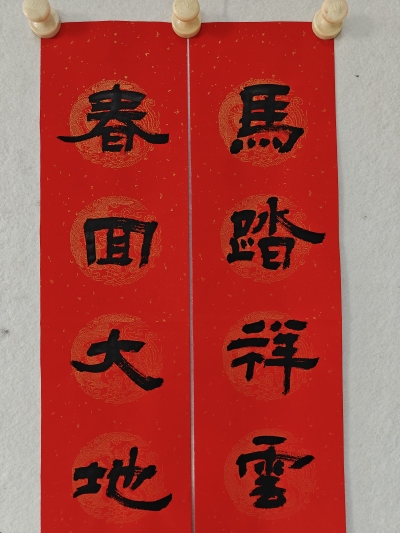 馬踏祥雲
春回大地